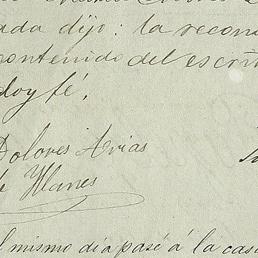 ada dijo: la recono
contenido del escri
doy fé.
Dolores Arias
de Llanes
l mismo dia pasé á la casa